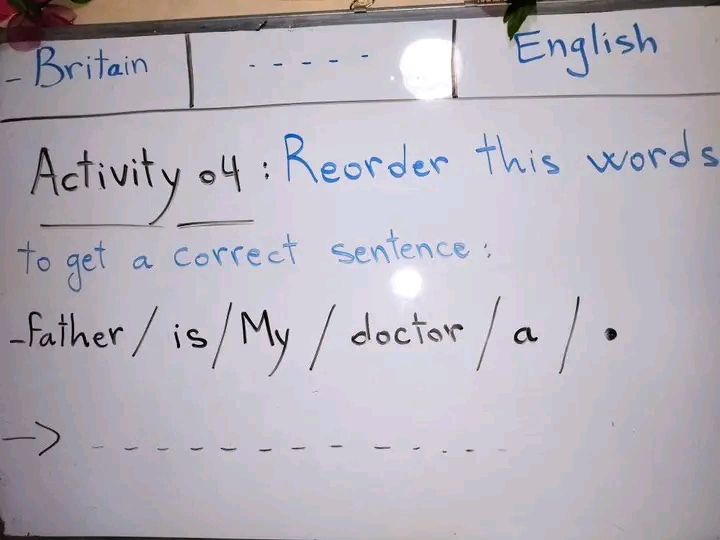 - Britain ----- English
Activity 04 : Reorder this words
to get a correct sentence :
- father / is / My / doctor / a / .
→ -----------